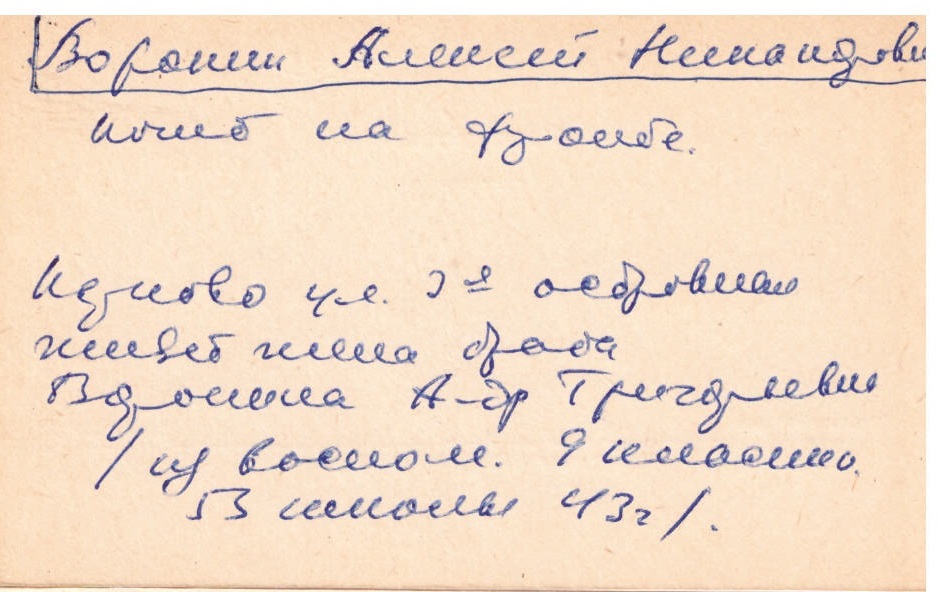 Воронин Алексей Никандрови
погиб на фронте.
Купово ул. 3я островная
живет жена брата
Воронина А-др Григорьеви
/из воспом. 9 классни.
53 школы 43г/.